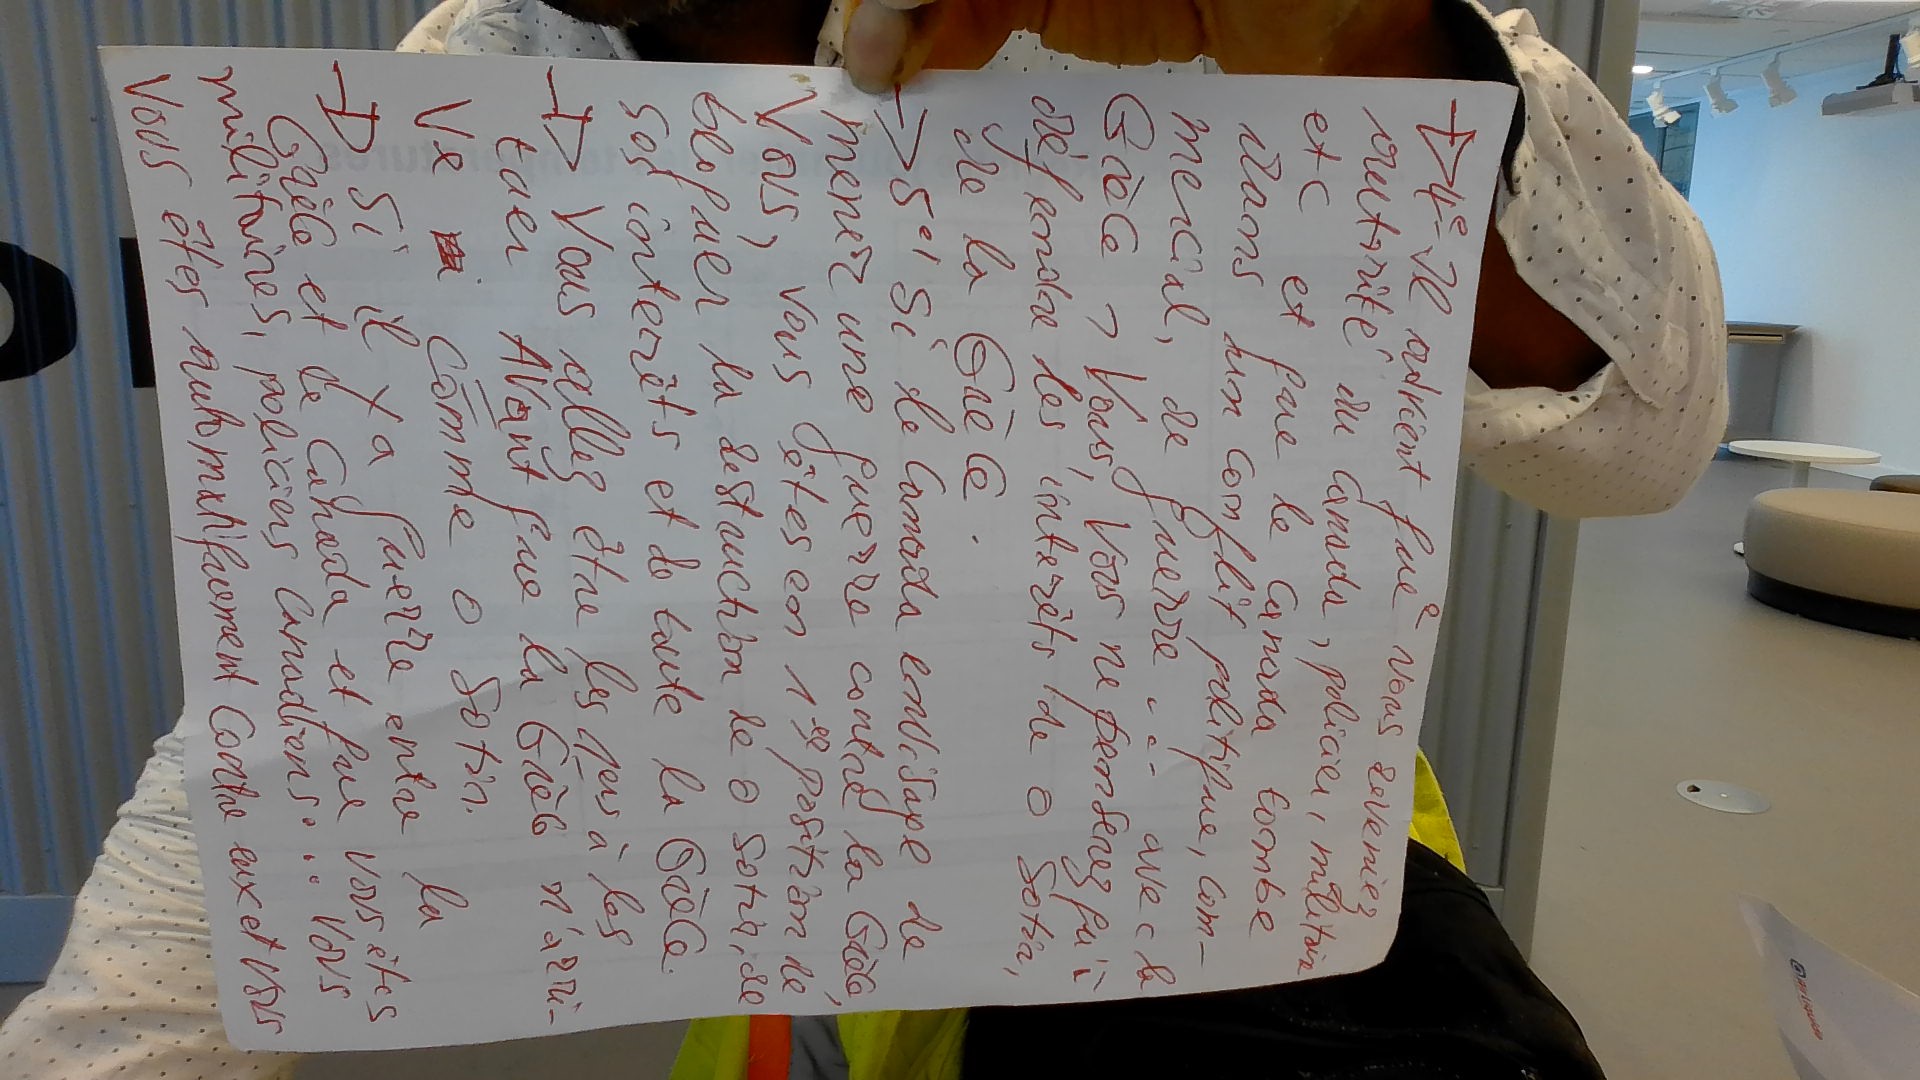 → 4º- Il advient que vous reveniez
autorité du canada, policier, militaire
etc et que le Canada tombe
dans hun conflit politique, com-
mercial, de guerre ... avec la
Grèce, Vous, Vous ne pensenez qu'à
défendre les interêts de O Sotir,
de la Grèce.
→ 5º' Si le Canada envisage de
mener une guerre contre la Grèce,
Vous, vous êtes en 1re position de
bloquer la destruction de O Sotir, de
ses interêts et de toute la Grèce.
→ Vous allez être les 1ers à les
tuer AVant que la Grèce n'arri-
Ve Comme O Sotir.
→ Si il y a guerre entre la
Grèce et le Canada et que vous êtes
militaires, policiers Canadiens... Vous
Vous êtes automatiquement Contre eux et Vous